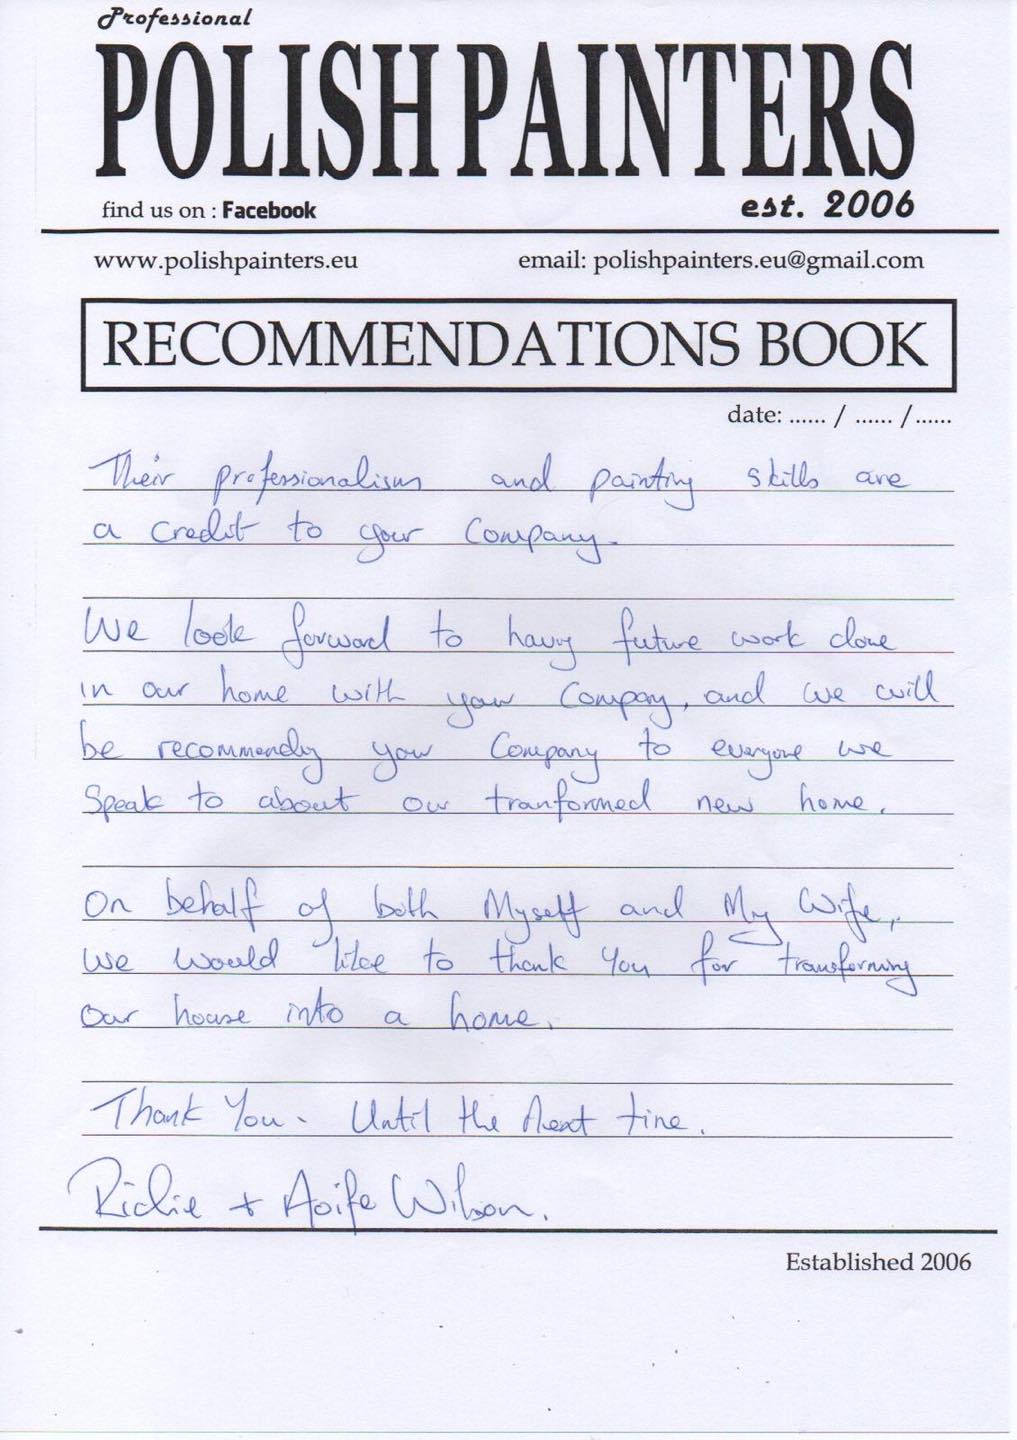 Professional
POLISH PAINTERS
find us on : Facebook est. 2006
www.polishpainters.eu email: polishpainters.eu@gmail.com
RECOMMENDATIONS BOOK
date: ...... / ...... /......
Their professionalism and painting skills are
a credit to your Company.
We look forward to having future work done
in our home with your Company, and we will
be recommending your Company to everyone we
Speak to about our tranformed new home.
On behalf of both Myself and My Wife,
we would like to thank you for transforming
our house into a home.
Thank You. Until the Next time.
Richie + Aoife Wilson.
Established 2006